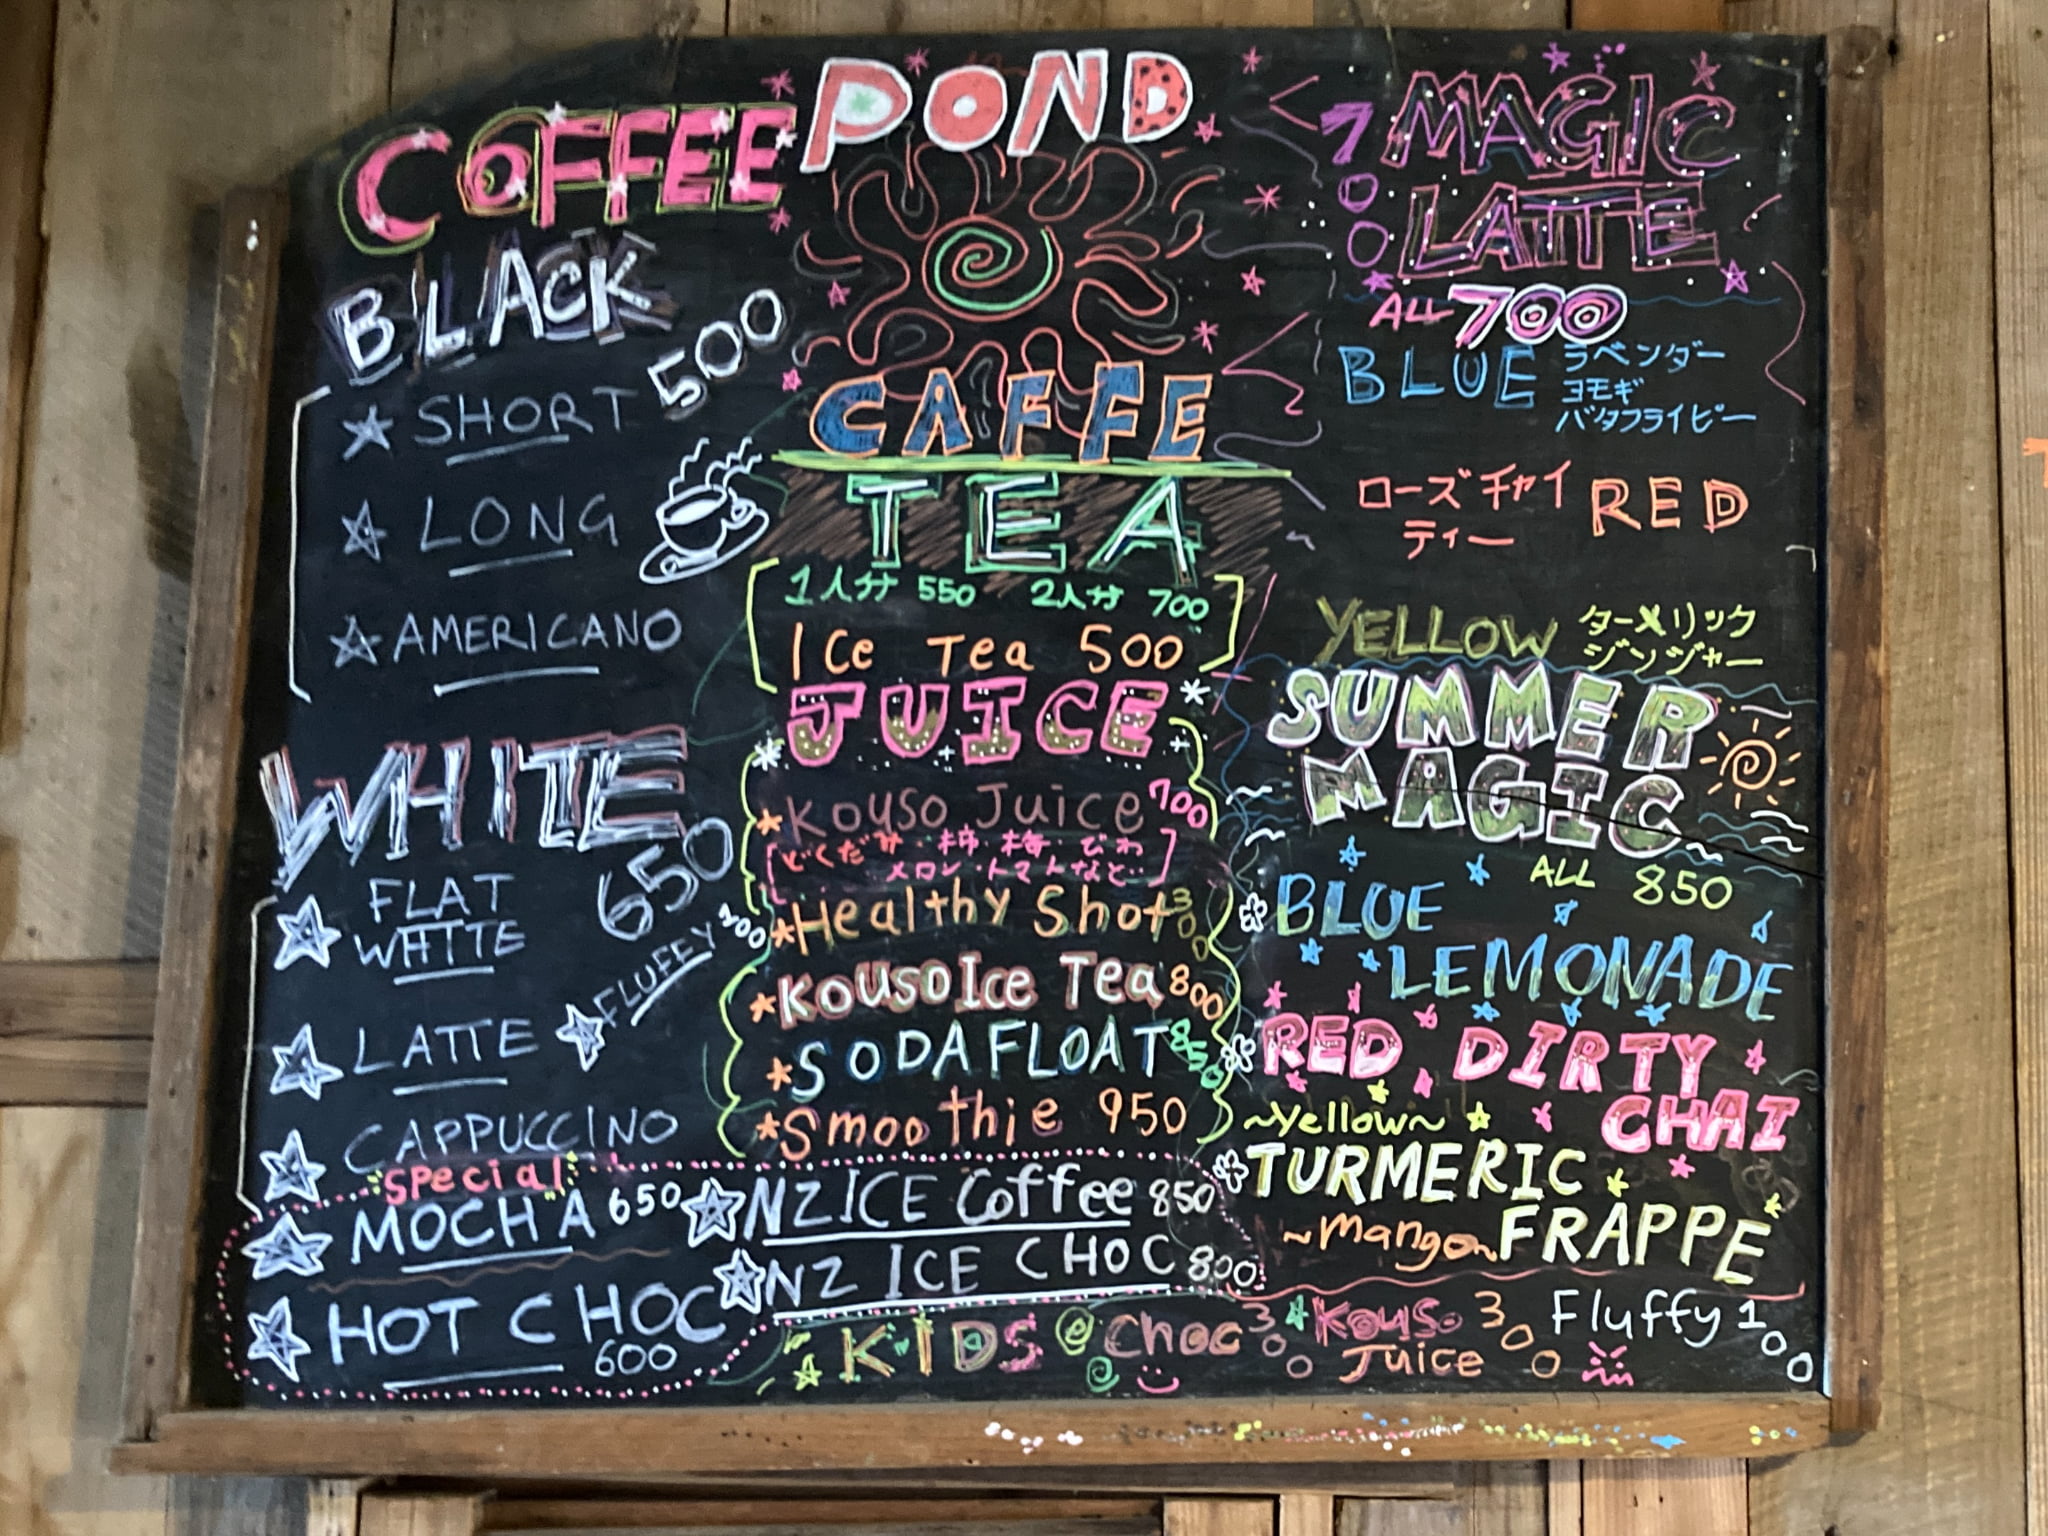 POND
CAFFE
COFFEE
BLACK
500
SHORT
LONG
AMERICANO
WHITE
650
FLAT
WHITE
FLUFFY 100
LATTE
CAPPUCCINO
special
MOCHA 650
HOT CHOC
600
NZ ICE Coffee 850
NZ ICE CHOC 800
TEA
1人分 550 2人分 700
Ice Tea 500
JUICE
Kouso Juice 700
どくだみ・柿・梅・びわ
メロン・トマトなど…
Healthy Shot 300
Kouso Ice Tea 800
SODA FLOAT 850
Smoothie 950
MAGIC
LATTE
ALL 700
BLUE ラベンダー
ヨモギ
バタフライピー
ローズチャイ RED
ティー
YELLOW ターメリック
ジンジャー
SUMMER
MAGIC
ALL 850
BLUE
LEMONADE
RED DIRTY
CHAI
~Yellow~
TURMERIC
~mango~ FRAPPE
KIDS Choc 300 Kouso 300 Fluffy 100
Juice